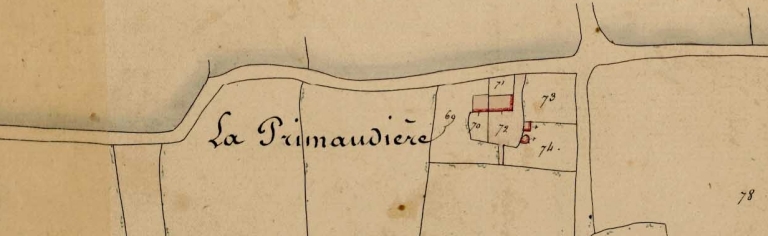 71
73
69
70
72
La Primaudière
74.
78